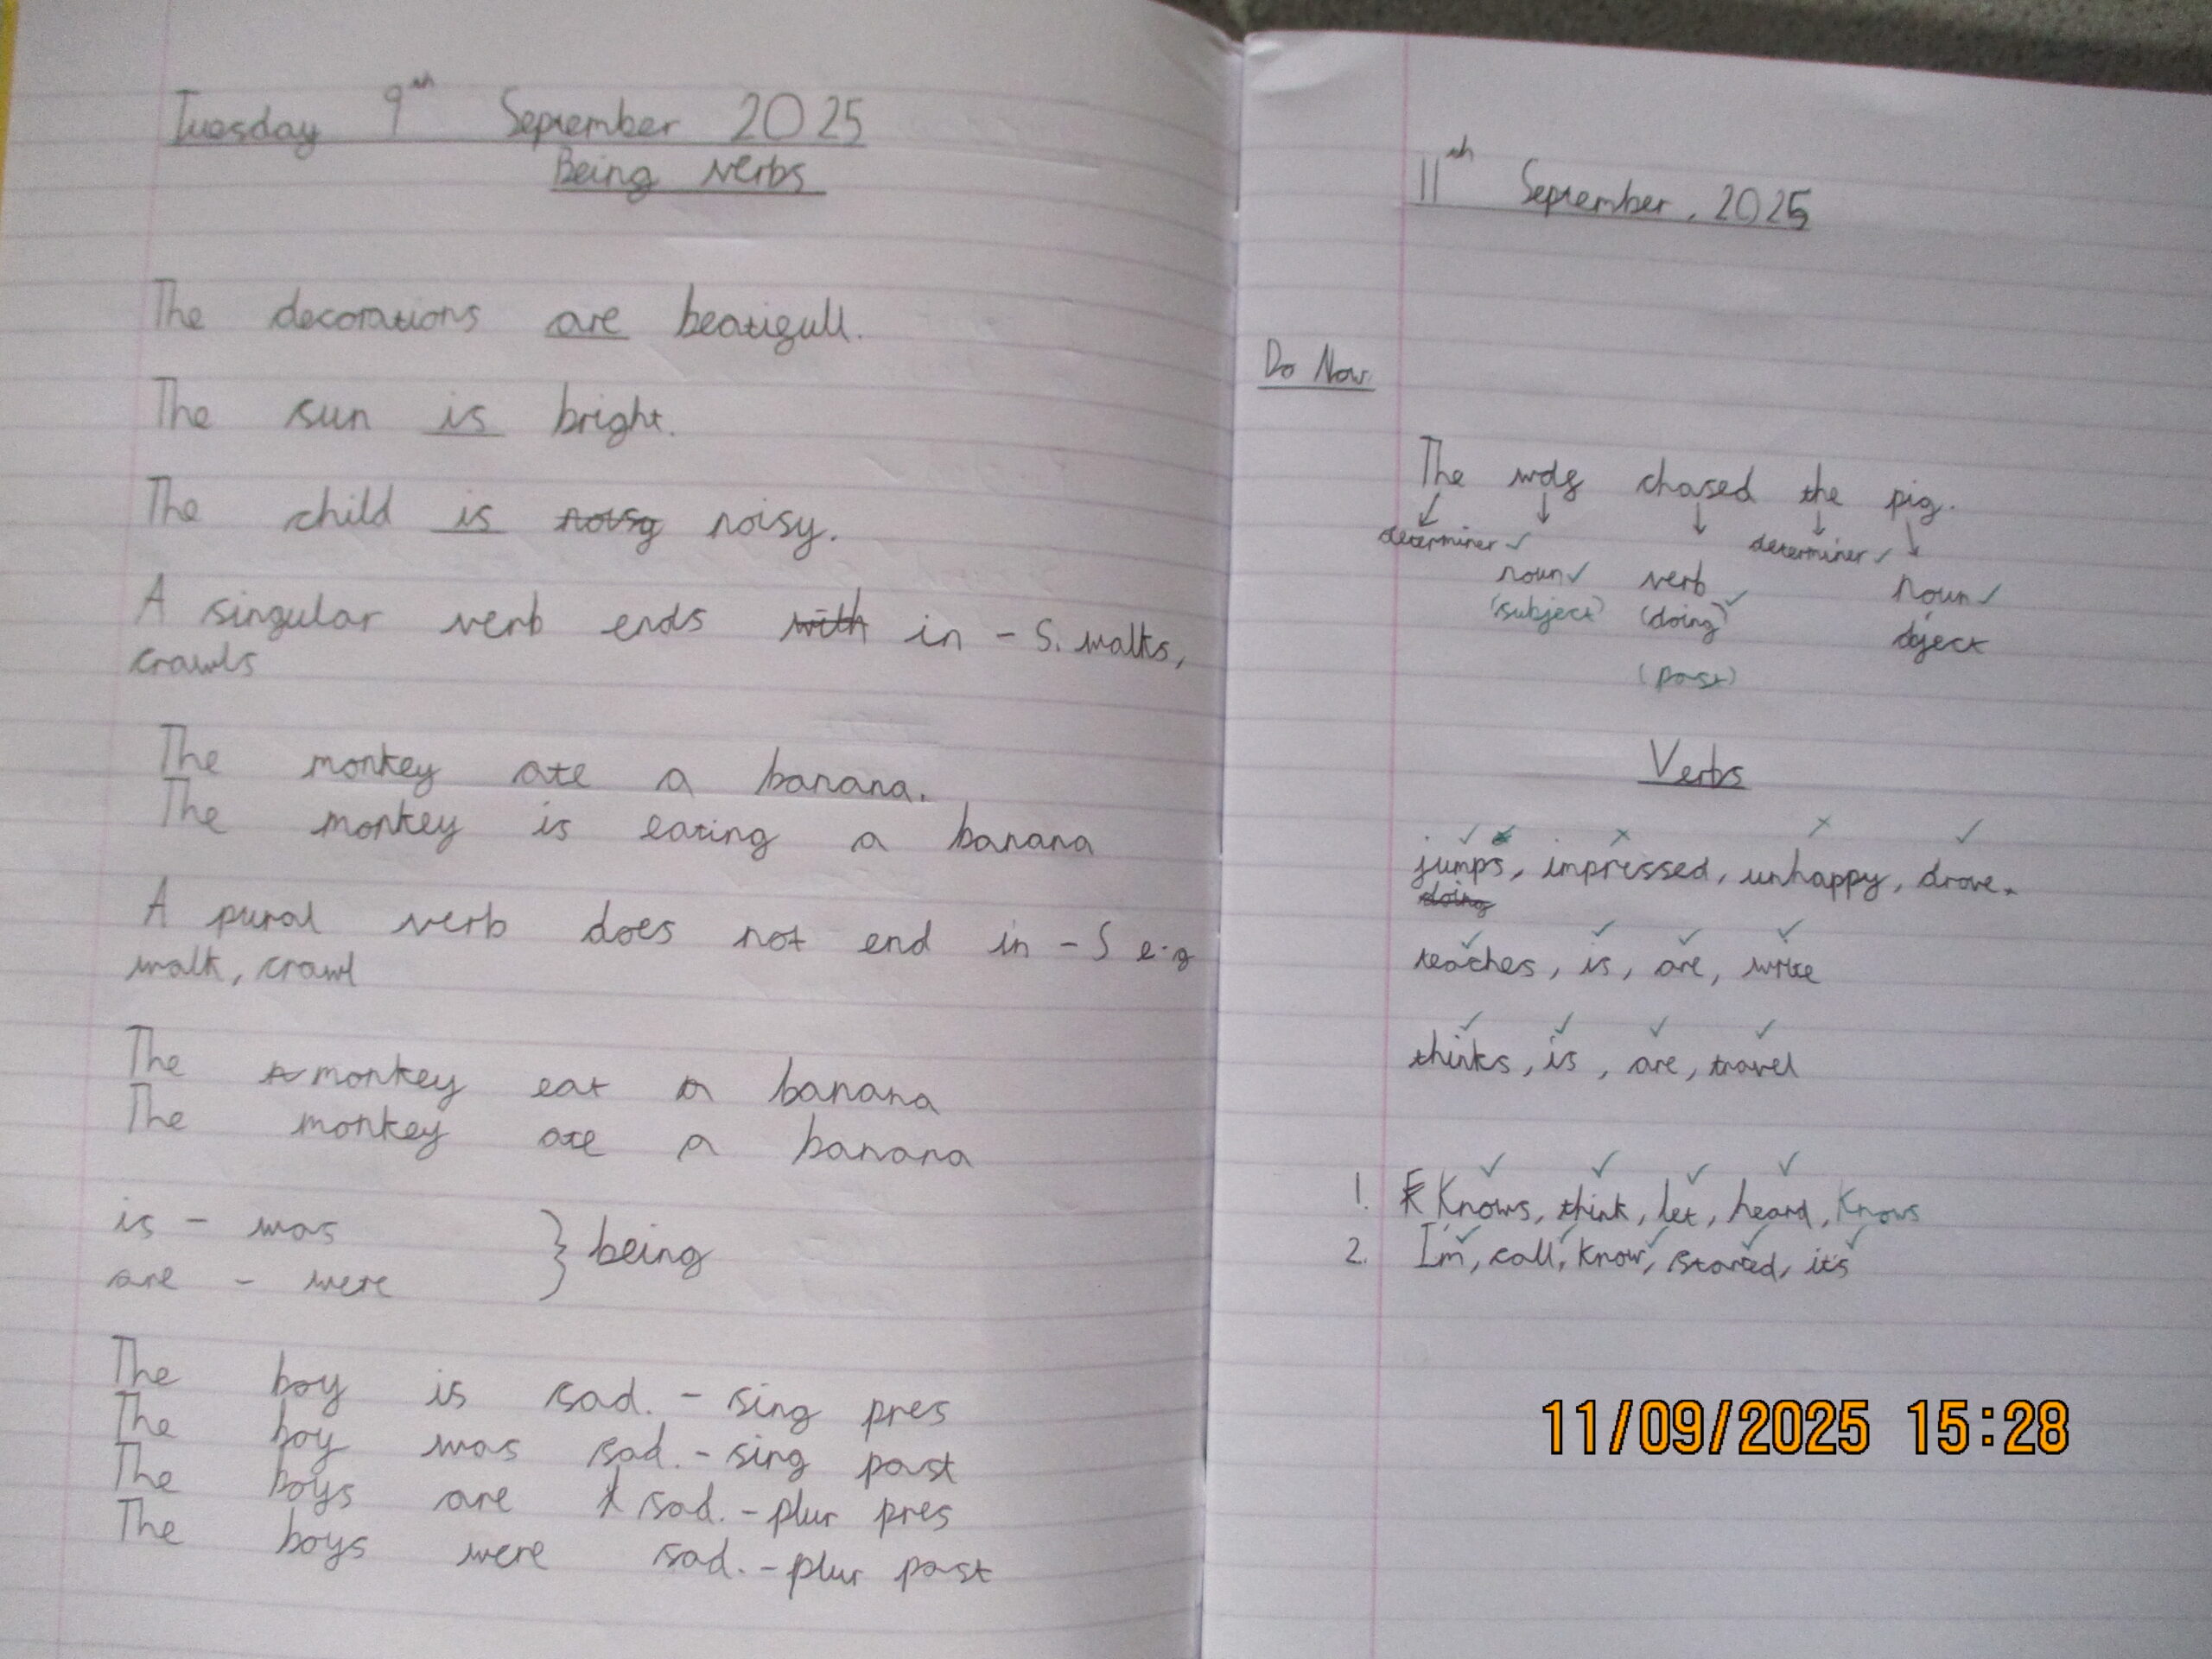 Tuesday 9th September 2025
Being verbs
The decorations are beatigull.
The sun is bright.
The child is noisy noisy.
A singular verb ends with in - S. walks,
crawls
The monkey ate a banana.
The monkey is eating a banana
A pural verb does not end in - S e.g
walk, crawl
The monkey eat a banana
The monkey ate a banana
is - was
are - were
} being
The boy is sad. - sing pres
The boy was sad. - sing past
The boys are sad. - plur pres
The boys were sad. - plur past
11th September, 2025
Do Now
The wolf chased the pig.
determiner ✓ determiner ✓
noun ✓ verb ✓ noun ✓
(subject) (doing) object
(past)
Verbs
jumps, impressed, unhappy, drove.
doing
teaches, is, are, write
thinks, is, are, travel
1. Knows, think, let, heard, Knows
2. I'm, call, know, stared, it's
11/09/2025 15:28